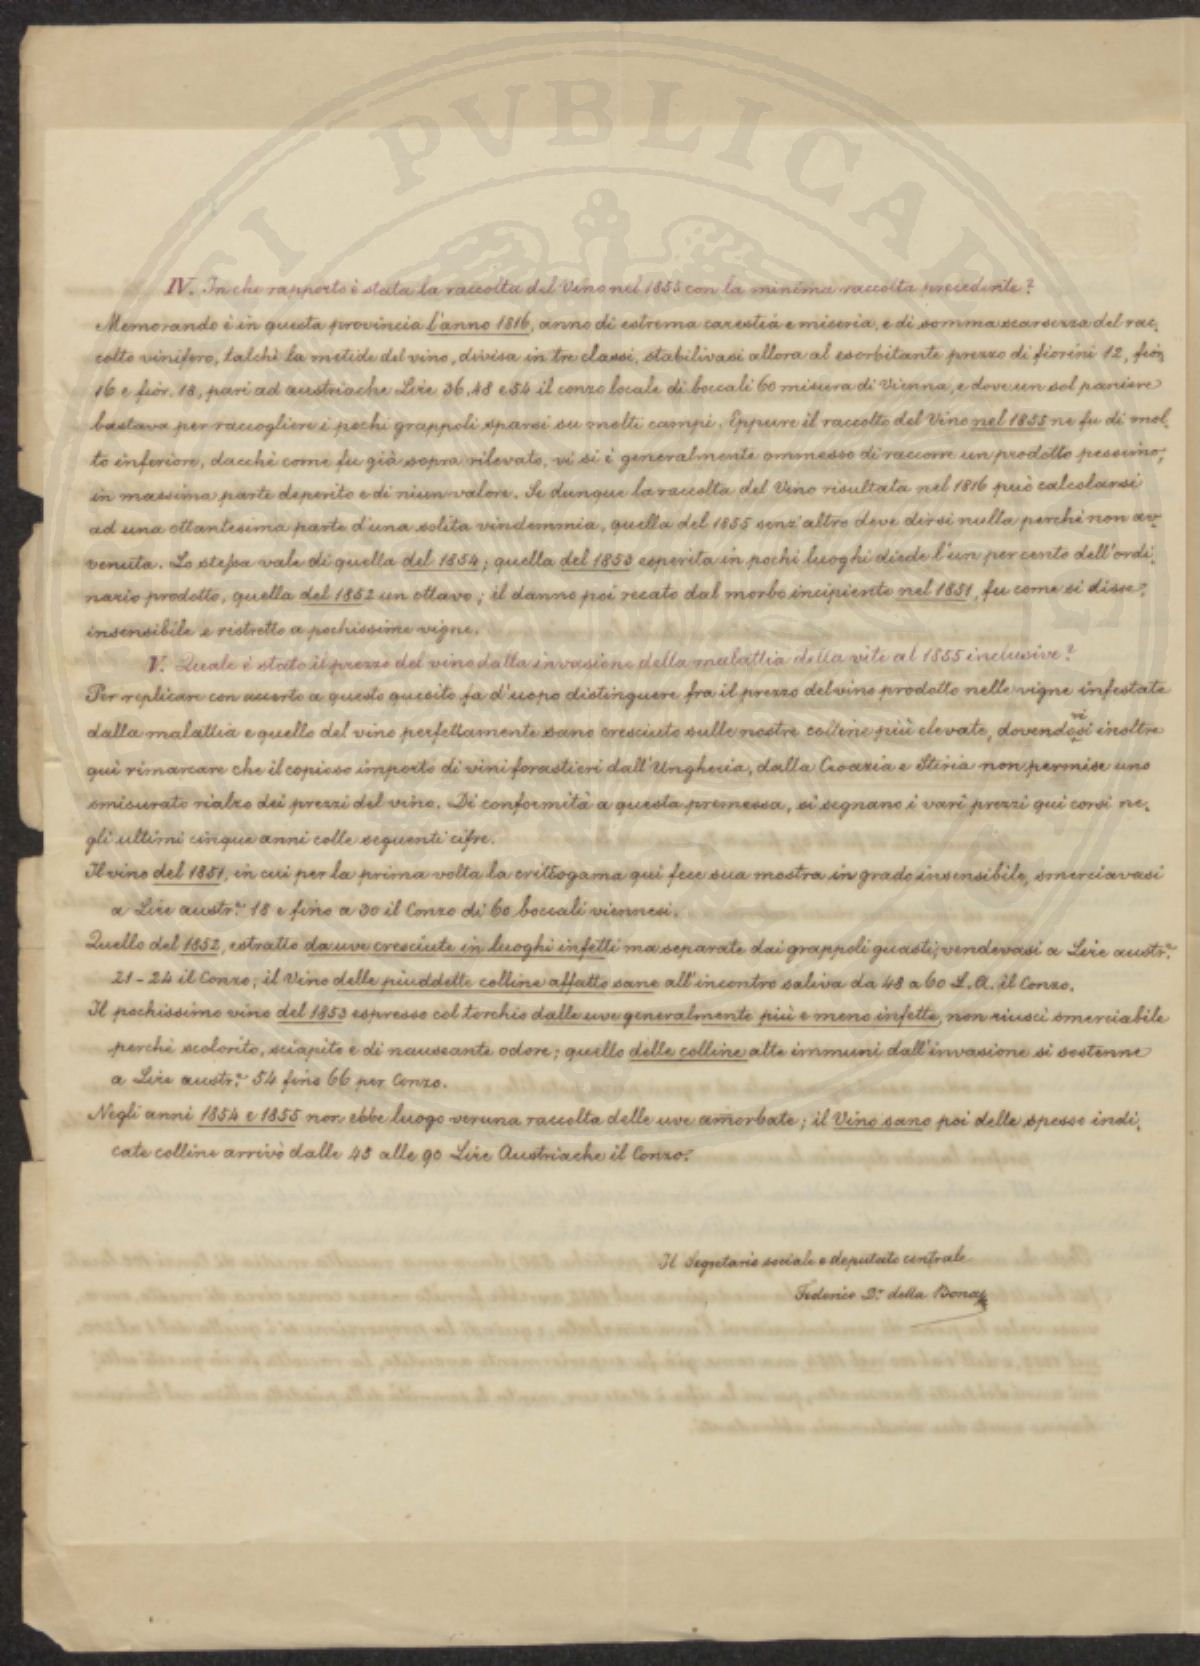 IV. In che rapporto è stata la raccolta del Vino nel 1855 con la minima raccolta precedente?
Memorando è in questa provincia l'anno 1816, anno di estrema carestia e miseria, e di somma scarsezza del rac,
colto vinifero, talchè la metide del vino, divisa in tre classi, stabilivasi allora al esorbitante prezzo di fiorini 12, fior.
16 e fior. 18, pari ad austriache Lire 36. 48 e 54 il conzo locale di boccali 60 misura di Vienna, e dove un sol paniere
bastava per raccogliere i pochi grappoli sparsi su molti campi. Eppure il raccolto del Vino nel 1855 ne fu di mol,
to inferiore, dacchè come fu già sopra rilevato, vi si è generalmente ommesso di raccorre un prodotto pessimo,
in massima parte deperito e di niun valore. Se dunque la raccolta del Vino risultata nel 1816 può calcolarsi
ad una ottantesima parte d'una solita vindemmia, quella del 1855 senz'altro deve dirsi nulla perchè non av,
venuta. Lo stesso vale di quella del 1854; quella del 1853 esperita in pochi luoghi diede l'un per cento dell'ordi,
nario prodotto, quella del 1852 un ottavo; il danno poi recato dal morbo incipiente nel 1851, fu come si disse,
insensibile e ristretto a pochissime vigne.
V. Quale è stato il prezzo del vino dalla invasione della malattia della vite al 1855 inclusive?
Per replicare con accerto a questo quesito fa d'uopo distinguere fra il prezzo del vino prodotto nelle vigne infestate
dalla malattia e quello del vino perfettamente sano cresciuto sulle nostre colline più elevate, dovendosi vi inoltre
qui rimarcare che il copioso importo di vini forastieri dall'Ungheria, dalla Croazia e Stiria non permise uno
smisurato rialzo dei prezzi del vino. Di conformità a questa premessa, si segnano i vari prezzi qui corsi ne,
gli ultimi cinque anni colle seguenti cifre.
Il vino del 1851, in cui per la prima volta la crittogama qui fece sua mostra in grado insensibile, smerciavasi
a Lire austr.e 18 e fino a 30 il Conzo di 60 boccali viennesi.
Quello del 1852, estratto da uve cresciute in luoghi infetti ma separate dai grappoli guasti, vendevasi a Lire austr.e
21-24 il Conzo; il Vino delle piuddette colline affatto sane all'incontro saliva da 48 a 60 L.A. il Conzo.
Il pochissimo vino del 1853 espresso col torchio dalle uve generalmente più e meno infette, non riuscì smerciabile
perchè scolorito, sciapito e di nauseante odore; quello delle colline alte immuni dall'invasione si sostenne
a Lire austr.e 54 fino 66 per Conzo.
Negli anni 1854 e 1855 non ebbe luogo veruna raccolta delle uve amorbate; il Vino sano poi delle spesso indi,
cate colline arrivò dalle 48 alle 90 Lire Austriache il Conzo.
Il Segretario sociale e deputato centrale
Federico D.r della Bona
PUBLICAE